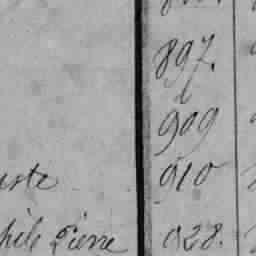 897.
909
uste 910
hile Pierre 928.